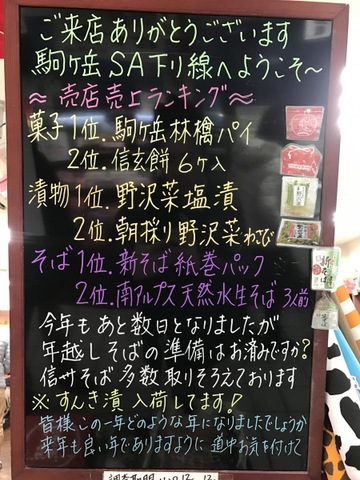 ご来店ありがとうございます
駒ヶ岳SA下り線へようこそ~
~売店売上ランキング~
菓子1位.駒ヶ岳林檎パイ
2位.信玄餅6ヶ入
漬物1位.野沢菜塩漬
2位.朝採り野沢菜わさび
そば1位.新そば紙巻パック
2位.南アルプス天然水生そば3人前
今年もあと数日となりましたが
年越しそばの準備はお済みですか?
信州そば多数取りそろえております
※すんき漬入荷してます!
皆様この一年どのような年になりましたでしょうか
来年も良い年でありますように道中お気を付けて